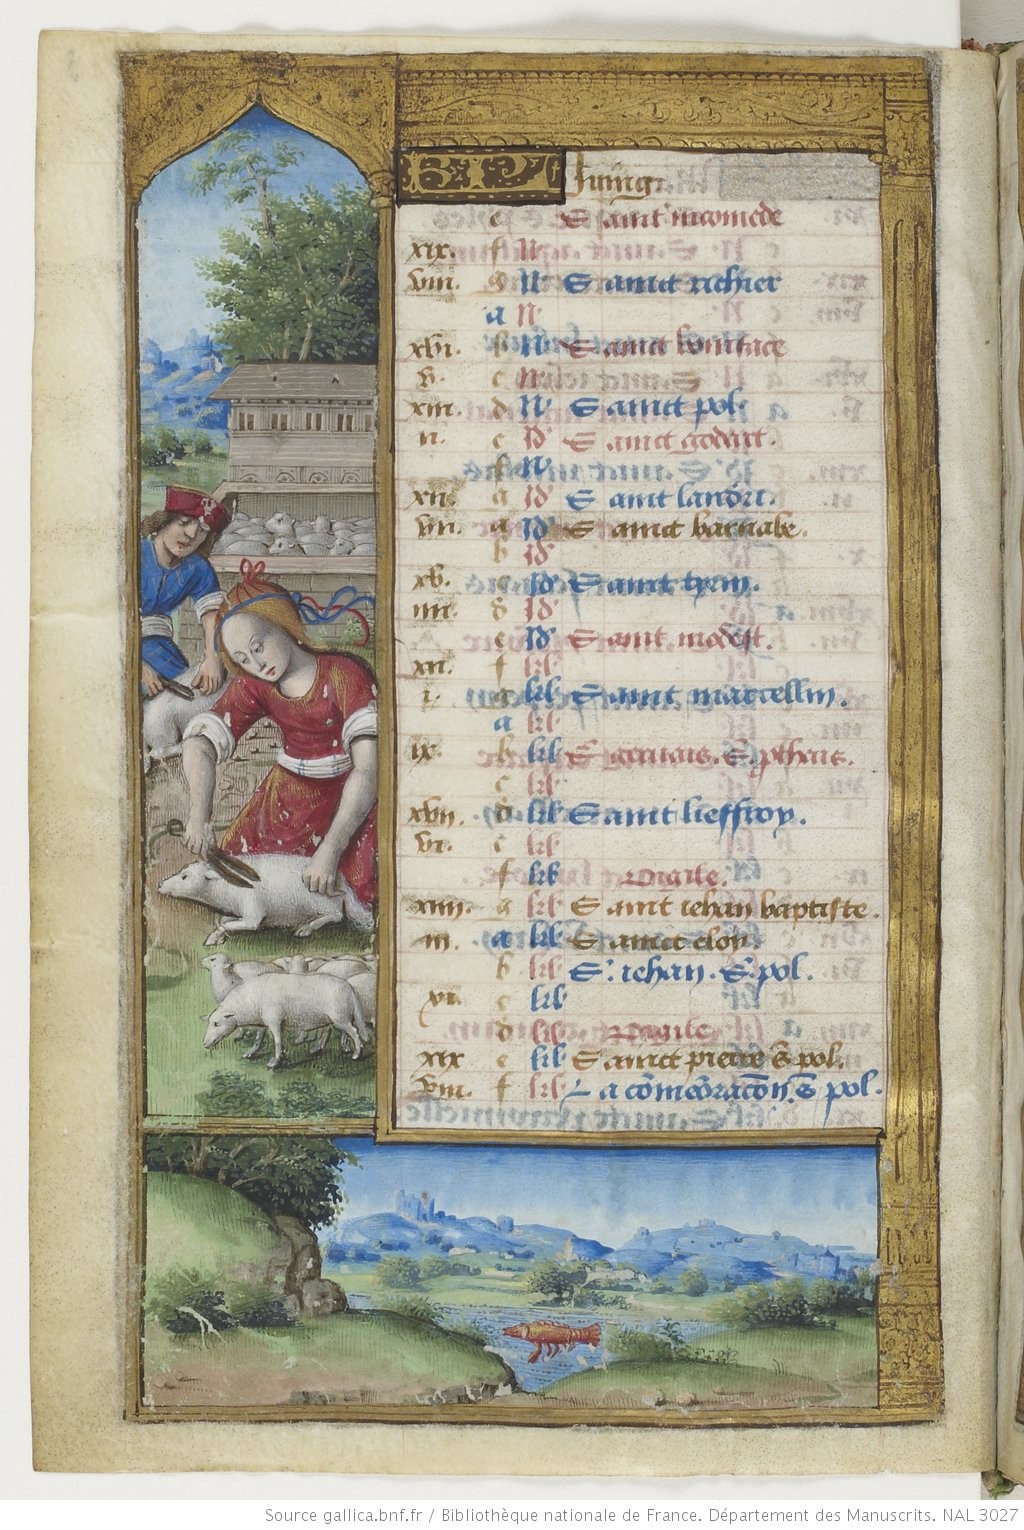 Juing
e Sainct nicomede
xix. f N
viii. g N Sainct richier
a N
xvi. b N Sainct boniface
v. c N
xiii. d N Sainct pol
ii. e Id Sainct godart.
f N
x. g Id Sainct landri.
a Id Sainct barnabe.
b Id
xv. c Id Sainct
iiii. d Id
e Id Sainct modest.
xii. f kl
i. g kl Sainct marcellin.
a kl
ix. b kl S. geruais. S. pthais.
c kl
xvii. d kl Sainct lieffroy.
vi. e kl
f kl Vigile.
xiiii. g kl Sainct iehan baptiste.
iii. a kl Sainct eloy.
b kl S. iehan. S. pol.
xi. c kl
d kl Vigile
xix e kl Sainct pierre S pol.
viii. f kl La cōmēoraciōn. S pol.
Source gallica.bnf.fr / Bibliothèque nationale de France. Département des Manuscrits. NAL 3027